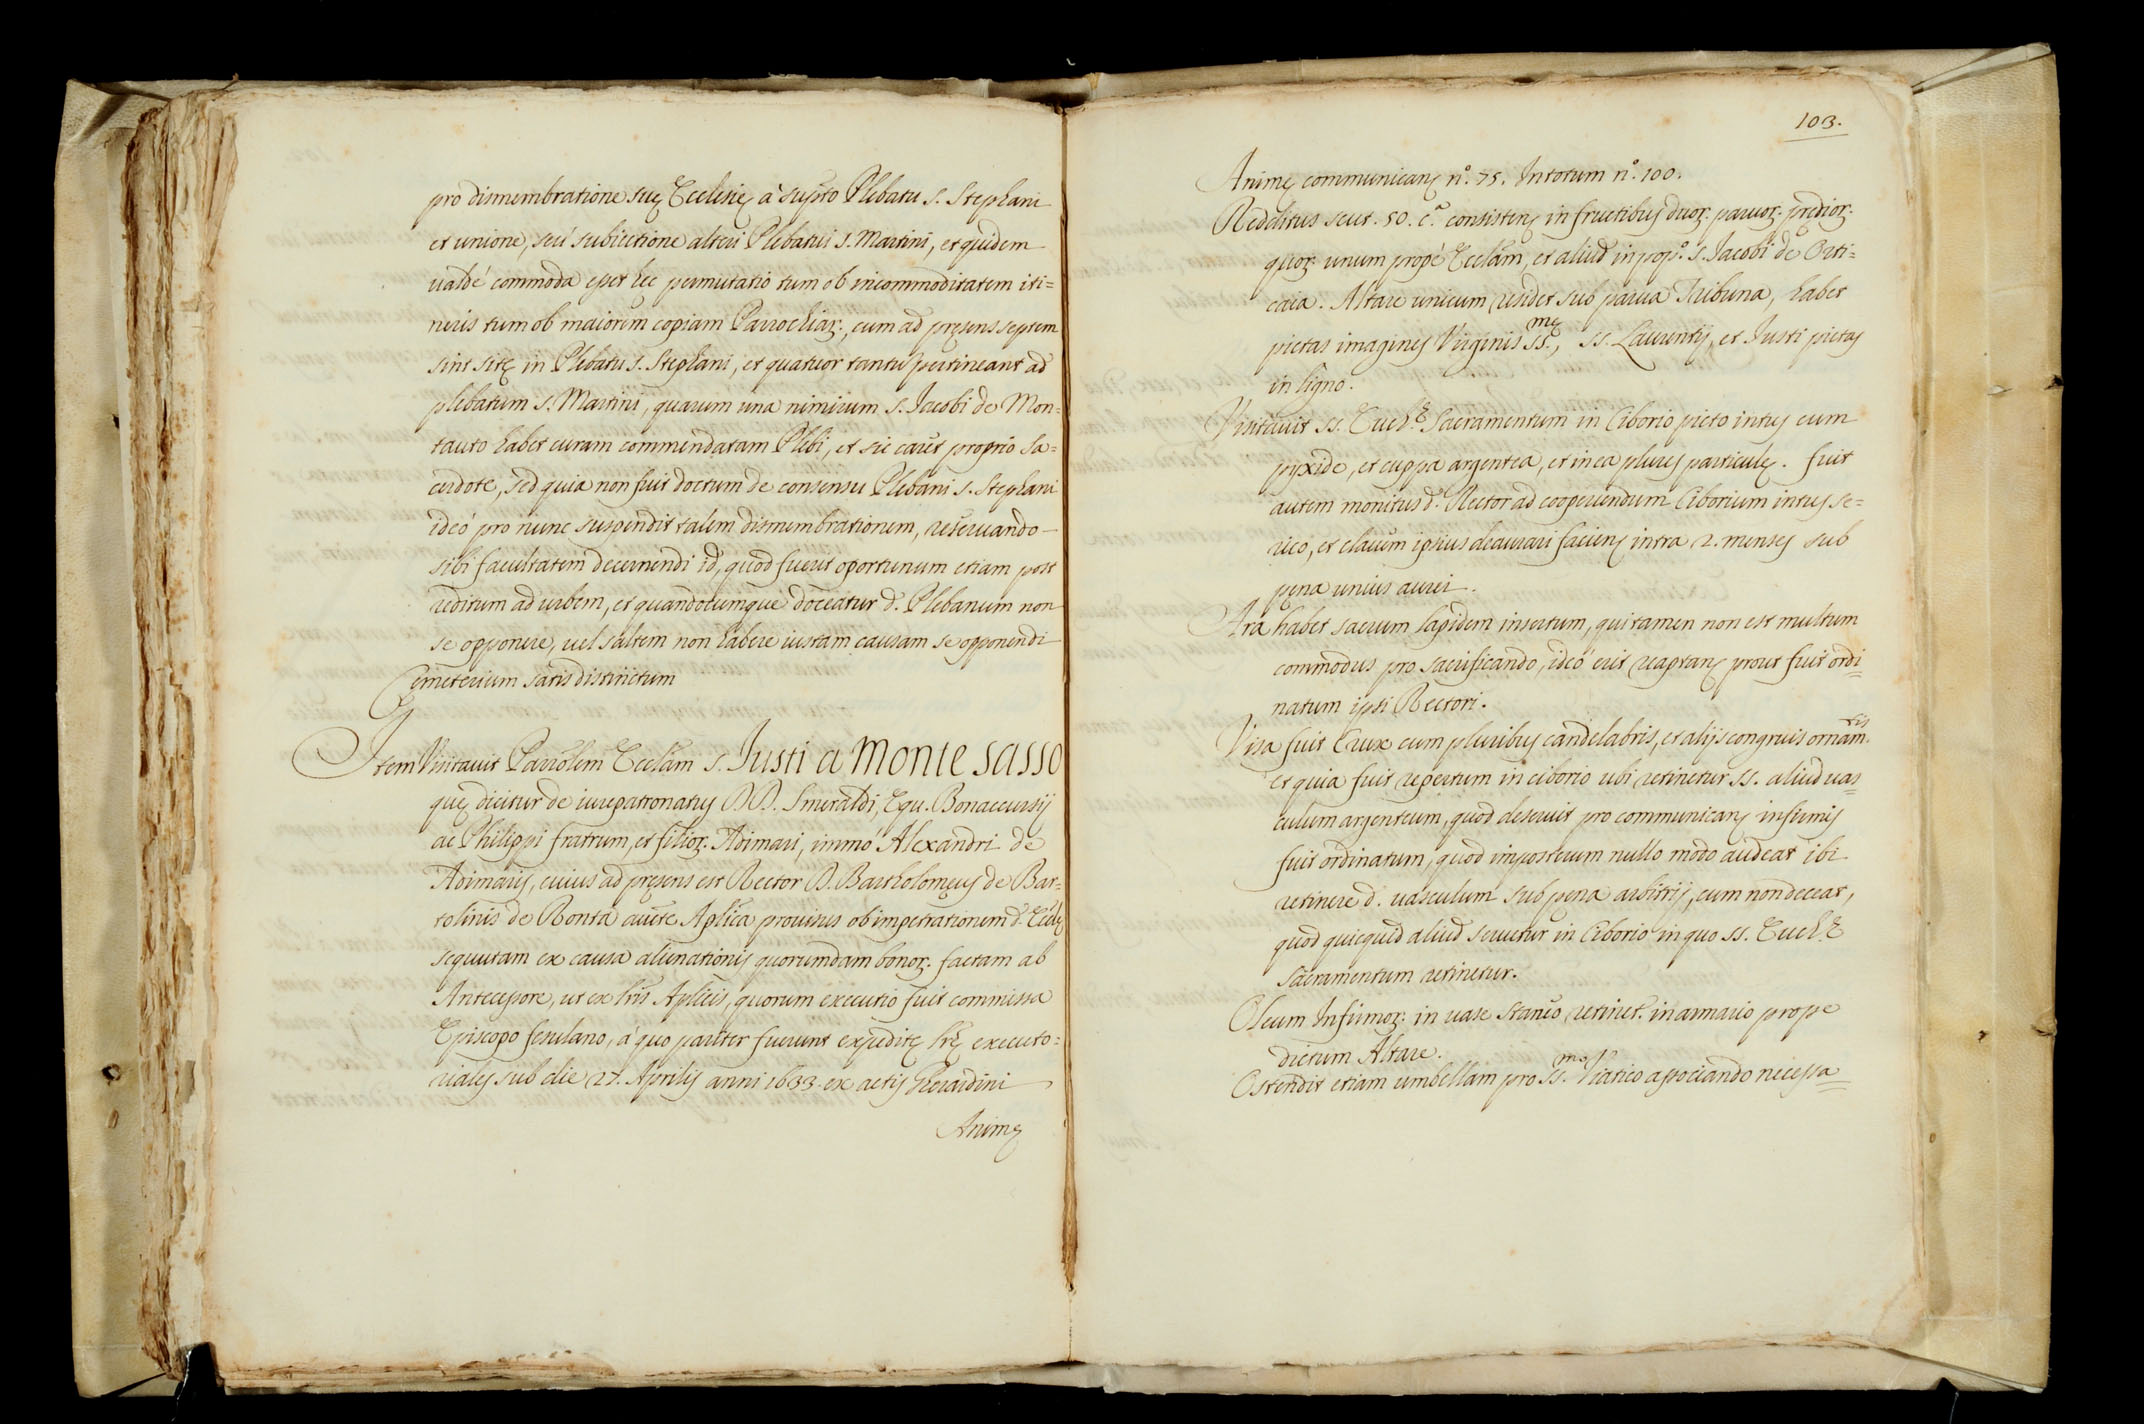 pro dismembratione suę Ecclesię à supto Plebatu S. Stephani
et unione, seù subiectione alteri Plebatui S. Martini, et quidem
ualdè commoda esset hec permutatio tum ob incommoditatem iti=
neris tum ob maiorem copiam Parrochiar:, cum ad pręsens septem
sint sitę in Plebatu S. Stephani, et quatuor tantũ pertineant ad
plebatum S. Martini, quarum una nimirum S. Iacobi de Mon=
tauto habet curam commendatam Plebi, et sic caret proprio Sa=
cerdote, sed quia non fuit doctum de consensu Plebani S. Stephani
ideò pro nunc suspendit talem dismembrationem, reseruando
sibi facultatem decernendi id, quod fuerit oportunum etiam post
reditum ad urbem, et quandocumque doceatur d. Plebanum non
se opponere, uel saltem non habere iustam causam se opponendi
Cęmeterium satis distinctum
Item Visitauit Parrõlem Ecclãm S. Iusti a Monte sasso
quę dicitur de iurepatronatus DD. Smeraldi, Equ. Bonaccursij
ac Philippi fratrum, et filior: Adimari, immò Alexandri de
Adimaris, cuius ad pręsens est Rector D. Bartholomęus de Bar=
tolinis de Ronta aucte Aplica prouisus ob impetrationem d. Ecclę
sequutam ex causa alienationis quorumdam bonor: factam ab
Antecessore, ut ex lris Aplicis, quorum executio fuit commissa
Episcopo fesulano, à quo pariter fuerunt expeditę lrę executo=
riales sub die 27. Aprilis anni 1633. ex actis Gherardini
Animę
103.
Animę communicanς nº. 75. Intotum nº. 100.
Redditus scut. 50. cª. consistenς in fructibus duor: paruor: prędior:
quor: unum propè Ecclãm, et aliud in popº. S. Iacobi de Orti=
caia. Altare unicum residet sub parua Tribuna, habet
pictas imagines Virginis SS.mę, SS. Laurentij, et Iusti pictas
in ligno.
Visitauit SS. Euch.ę Sacramentum in Ciborio picto intus cum
pyxide, et cuppa argentea, et in ea plures particulę. fuit
autem monitus d. Rector ad cooperiendum Ciborium intus se=
rico, et clauem ipsius deaurari faciens intra 2. menses sub
pena unius aurei.
Ara habet sacrum lapidem insertum, qui tamen non est multum
commodus pro sacrificando, ideò erit reaptanς prout fuit ordi=
natum ipsi Rectori.
Visa fuit Crux cum pluribus candelabris, et alijs congruis ornam.tis
et quia fuit repertum in ciborio ubi retinetur SS. aliud uas=
culum argenteum, quod deseruit pro communicanς infirmis
fuit ordinatum, quod imposterum nullo modo audeat ibi
retinere d. uasculum sub pena arbitrij, cum non deceat,
quod quicquid aliud seruetur in Ciborio in quo SS. Euch.ę
Sacramentum retinetur.
Oleum Infirmor: in uase staneo retinet. in armario prope
dictum Altare.
Ostendit etiam umbellam pro SS.mo Viatico associando necessa=